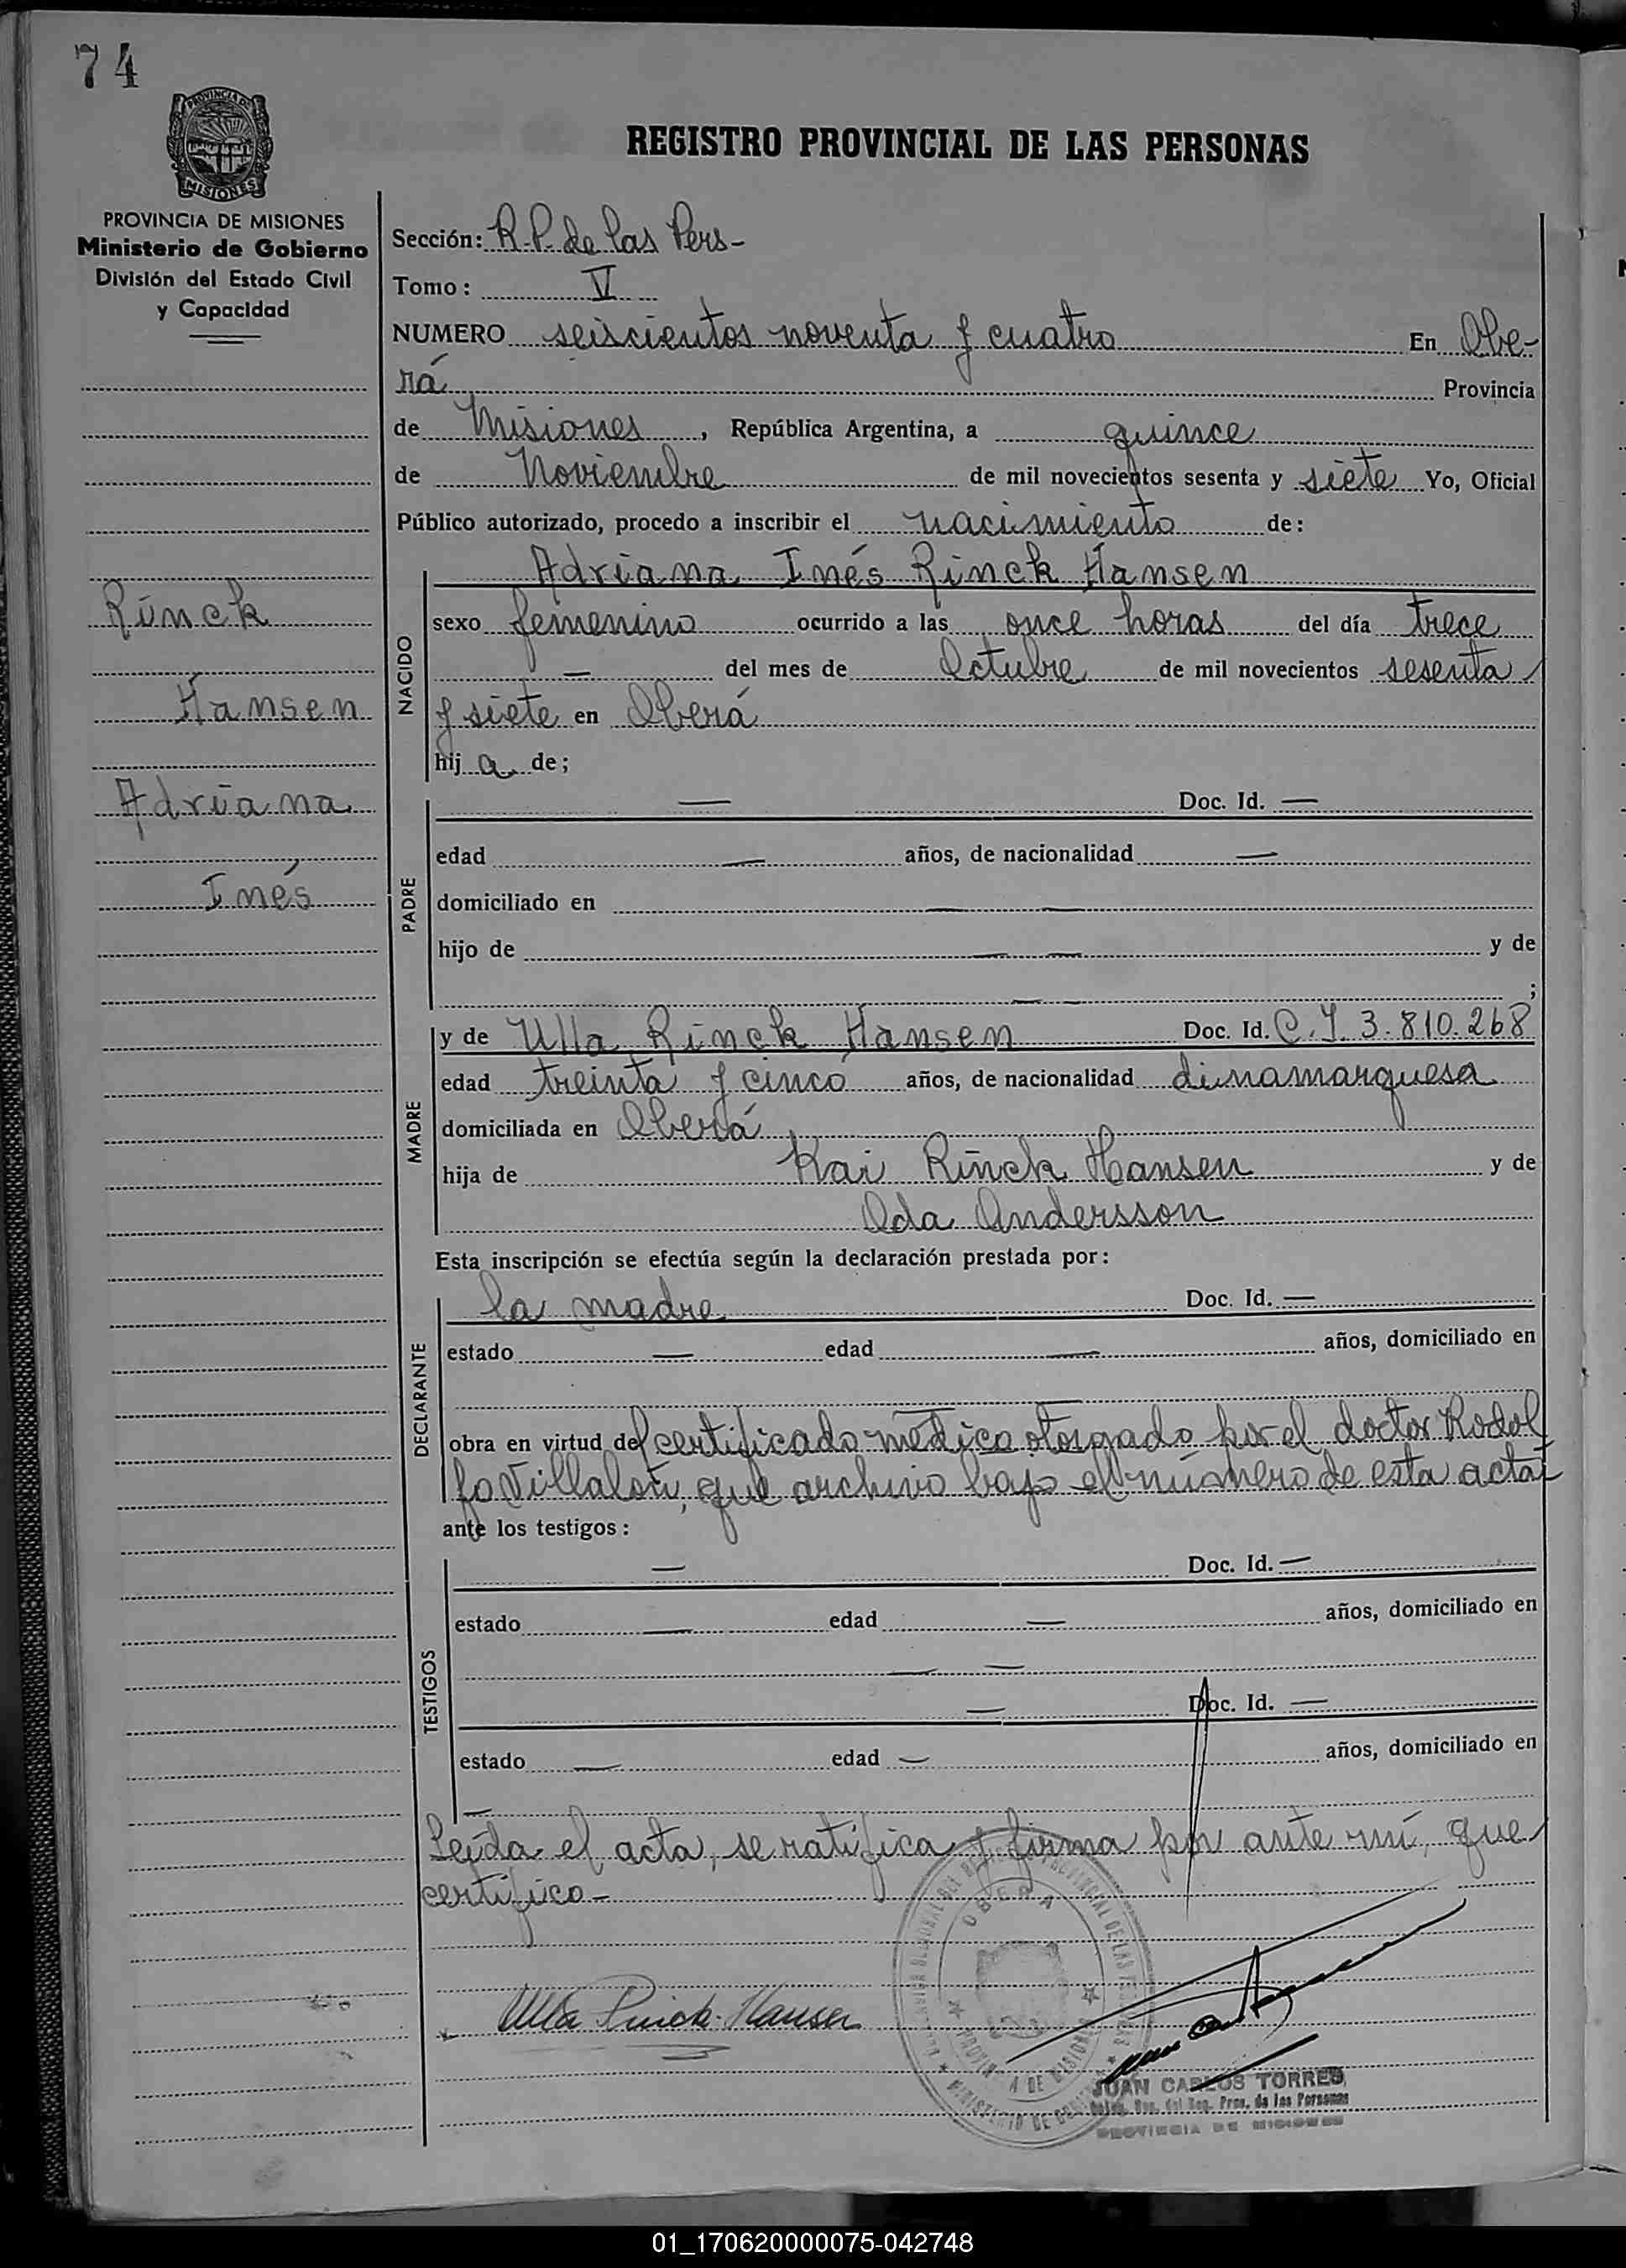 74
PROVINCIA DE
MISIONES
REGISTRO PROVINCIAL DE LAS PERSONAS
PROVINCIA DE MISIONES
Ministerio de Gobierno
División del Estado Civil
y Capacidad
Rinck
Hansen
Adriana
Inés
Sección: R.P. de las Pers-
Tomo: V
NUMERO seiscientos noventa y cuatro En Obe-
rá Provincia
de Misiones, República Argentina, a quince
de Noviembre de mil novecientos sesenta y siete Yo, Oficial
Público autorizado, procedo a inscribir el nacimiento de:
NACIDO
Adriana Inés Rinck Hansen
sexo femenino ocurrido a las once horas del día trece
— del mes de Octubre de mil novecientos sesenta
y siete en Oberá
hija de;
PADRE
— Doc. Id. —
edad — años, de nacionalidad —
domiciliado en — —
hijo de — — y de
— — ;
MADRE
y de Ulla Rinck Hansen Doc. Id. C.I. 3.810.268
edad treinta y cinco años, de nacionalidad dinamarquesa
domiciliada en Oberá
hija de Kai Rinck Hansen y de
Oda Andersson
Esta inscripción se efectúa según la declaración prestada por:
DECLARANTE
la madre Doc. Id. —
estado — edad — años, domiciliado en
obra en virtud del certificado médico otorgado por el doctor Rodol
fo Villalón, que archivo bajo el número de esta acta
ante los testigos:
TESTIGOS
— Doc. Id. —
estado — edad — años, domiciliado en
— —
— Doc. Id. —
estado — edad — años, domiciliado en
—
Leída el acta, se ratifica y firma por ante mí, que
certifico-
Ulla Rinck-Hansen
OBERA
PROVINCIA DE MISIONES
JUAN CARLOS TORRES
Reg. Prov. de las Personas
PROVINCIA DE MISIONES
01_170620000075-042748